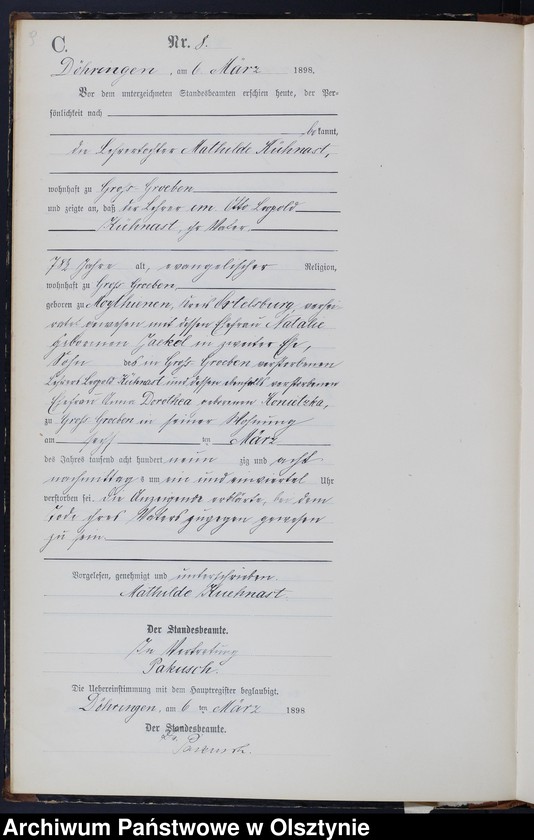 C.
Nr. 8.
Döhringen, am 6 März 1898.
Vor dem unterzeichneten Standesbeamten erschien heute, der Per-
sönlichkeit nach
bekannt,
die Lehrertochter Mathilde Kühnast,
wohnhaft zu Groß Groeben
und zeigte an, daß der Lehrer em Otto Leopold
Kühnast, ihr Vater
78½ Jahre alt, evangelischer Religion,
wohnhaft zu Groß Groeben
geboren zu Kreis Ortelsburg, verhei-
ratet gewesen mit dessen Ehefrau Natalie
geborenen Jackel in zweiter Ehe,
Sohn des in Groß Groeben verstorbenen
Lehrers Leopold Kühnast und dessen ebenfalls verstorbenen
Ehefrau Anna Dorothea geborenen Konutzka,
zu Groß Groeben in seiner Wohnung
am sechs ten März
des Jahres tausend acht hundert neun zig und acht
nachmittags um ein und einviertel Uhr
verstorben sei. Die Anzeigende erklärte, bei dem
Tode ihres Vaters zugegen gewesen
zu sein
Vorgelesen, genehmigt und unterschrieben.
Mathilde Kuehnast.
Der Standesbeamte.
In Vertretung
Pakusch.
Die Uebereinstimmung mit dem Hauptregister beglaubigt.
Döhringen, am 6 ten März 1898
Der Standesbeamte.
Archiwum Państwowe w Olsztynie